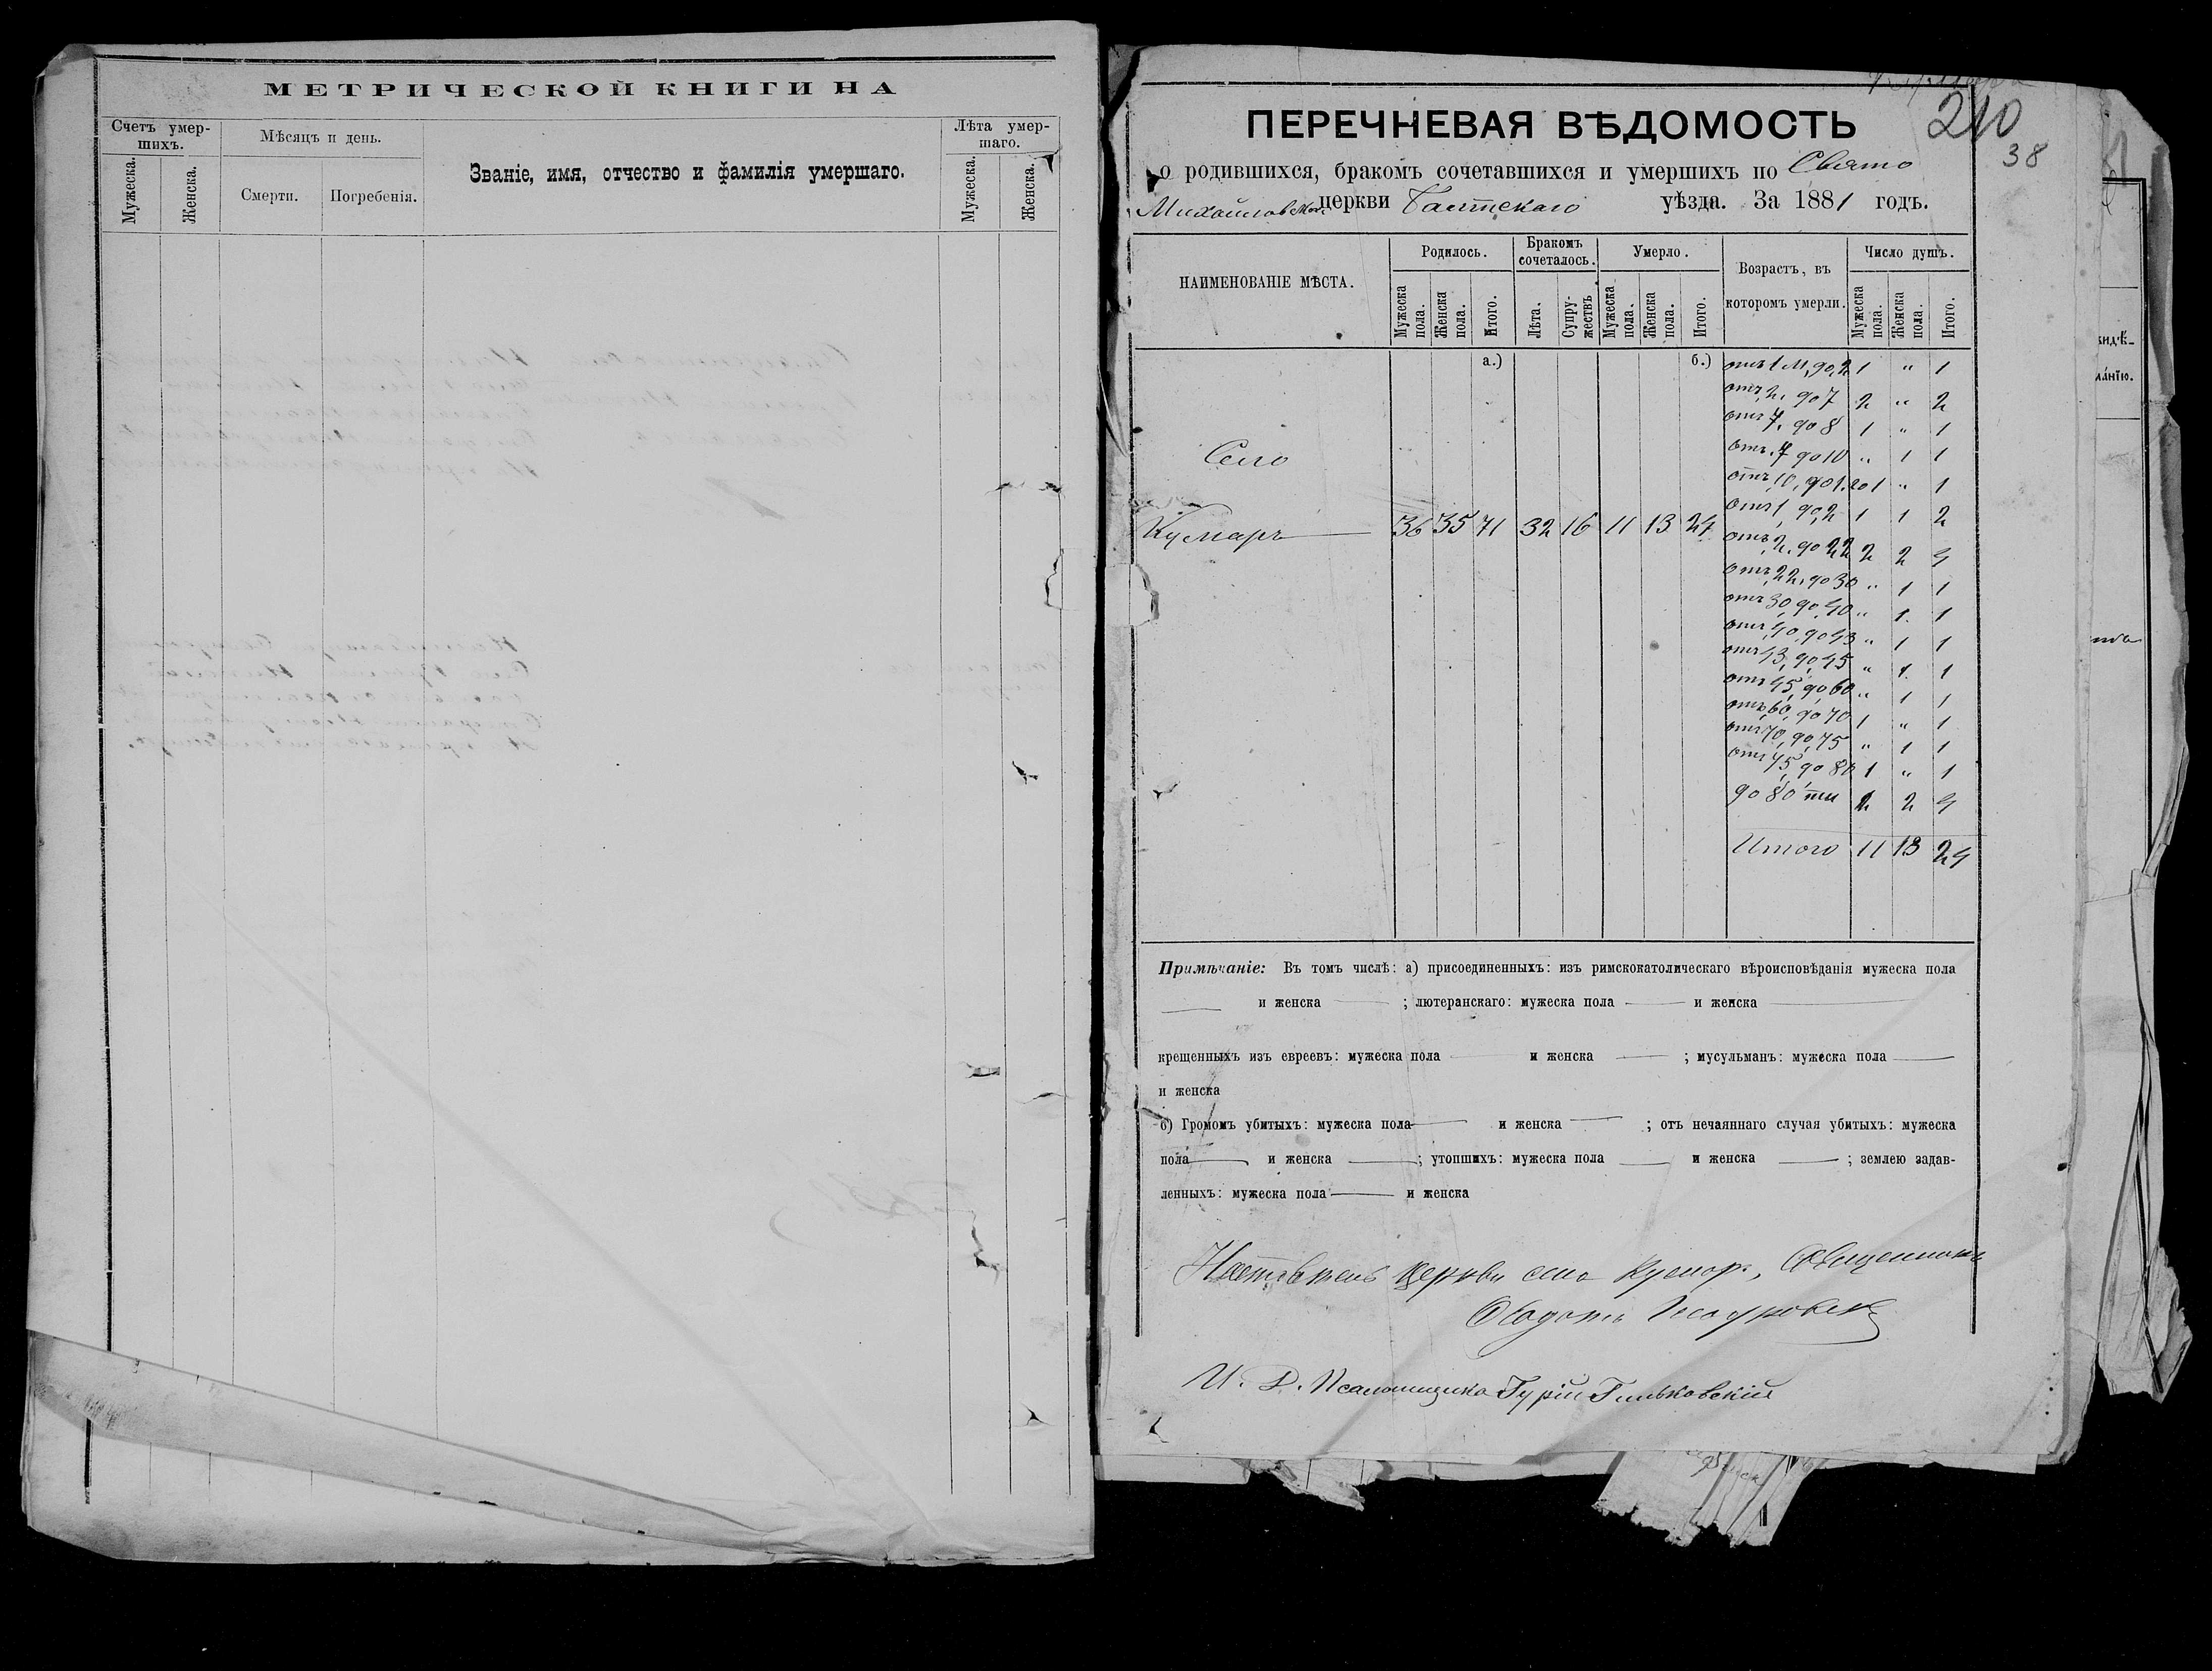 МЕТРИЧЕСКОЙ КНИГИ НА
Счетъ умер-
шихъ.
Мужеска.
Женска.
Мѣсяцъ и день.
Смерти.
Погребенія.
Званіе, имя, отчество и фамилія умершаго.
Лѣта умер-
шаго.
Мужеска.
Женска.
210
38
ПЕРЕЧНЕВАЯ ВѢДОМОСТЬ
о родившихся, бракомъ сочетавшихся и умершихъ по Свято
Михайловской церкви Балтскаго уѣзда. За 1881 годъ.
НАИМЕНОВАНІЕ МѢСТА.
Родилось.
Мужеска пола.
Женска пола.
Итого.
Бракомъ сочеталось.
Лѣта.
Супру-жествъ
Умерло.
Мужеска пола.
Женска пола.
Итого.
Возрастъ, въ
которомъ умерли.
Число душъ.
Мужеска пола.
Женска пола.
Итого.
а.) б.)
Село
Кумаръ 36 35 71 32 16 11 13 24
отъ 1 м. до 2 1 " 1
отъ 2, до 7 2 " 2
отъ 7, до 8 1 " 1
отъ 7 до 10 " 1 1
отъ 10, до 1. 1 " 1
отъ 1, до 2 1 1 2
отъ 2, до 22 2 2 4
отъ 22, до 30 " 1 1
отъ 30, до 40 " 1 1
отъ 40, до 43 " 1 1
отъ 43, до 45 " 1 1
отъ 45, до 60 " 1 1
отъ 60, до 70 1 " 1
отъ 70, до 75 " 1 1
отъ 75, до 80 1 " 1
до 80ти 2 2 4
Итого 11 13 24
Примѣчаніе: Въ томъ числѣ: а) присоединенныхъ: изъ римскокатолическаго вѣроисповѣданія мужеска пола
и женска ; лютеранскаго: мужеска пола и женска
крещенныхъ изъ евреевъ: мужеска пола и женска ; мусульманъ: мужеска пола
и женска
б) Громомъ убитыхъ: мужеска пола и женска ; отъ нечаяннаго случая убитыхъ: мужеска
пола и женска ; утопшихъ: мужеска пола и женска ; землею задав-
ленныхъ: мужеска пола и женска
Настоятель церкви села Кумаръ, Священникъ
И. Д. Псаломщика Гурій Гиньковскій